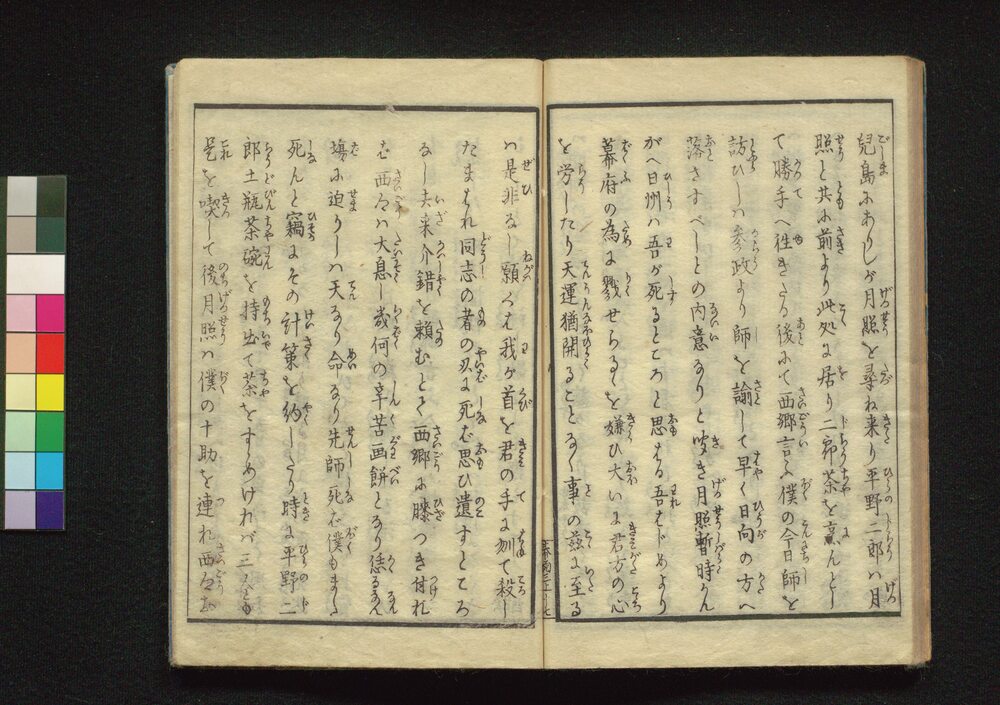 児島にありしが月照を尋ね来り平野二郎は月
照と共に前より此処に居り二郎茶を烹んとし
て勝手へ往きたる後にて西郷言ふ僕の今日師を
訪ひしは参政より師を諭して早く日向の方へ
落さすべしとの内意なりと囁き月照暫時かん
がへ日州は吾が死るところと思はる吾はじめより
幕府の為に戮せらるゝを嫌ひ大いに君方の心
を労したり天運猶開ることなく事の茲に至る
は是非なし願くは我が首を君の手に刎て殺し
たまはれ同志の者の刃に死ば思ひ遺すところ
なし去来介錯を頼むとて西郷に膝つき付れ
ば西郷は大息し歳何の辛苦画餅となり恁る
場に迫りしは天なり命なり先師死ば僕もまた
死んと竊にその計策を約したり時に平野二
郎土瓶茶碗を持出て茶をすゝめければ三人とも
是を喫して後月照は僕の十助を連れ西郷